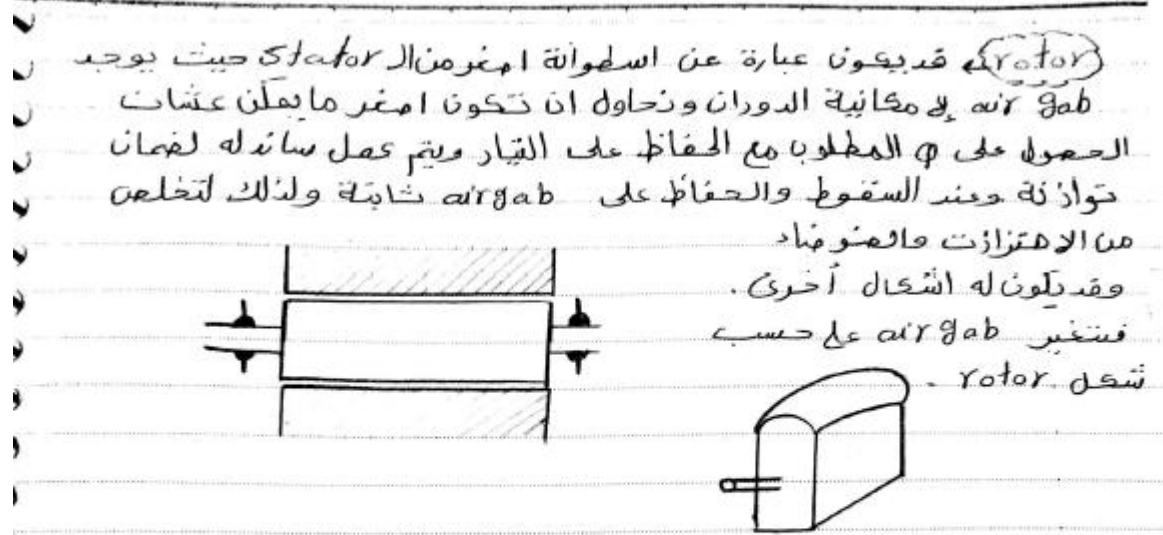 rotor قد يكون عبارة عن اسطوانة اصغر من الـ stator حيث يوجد
air gab لإمكانية الدوران ونحاول ان تكون اصغر ما يمكن عشان
الحصول على φ المطلوب مع الحفاظ على التيار ويتم عمل ساند له لضمان
توازنة وعند السقوط والحفاظ على airgab ثابتة ولذلك لتخلص
من الاهتزازت والضوضاء
وقد يكون له اشكال أخرى.
فتتغير air gab على حسب
شكل rotor.